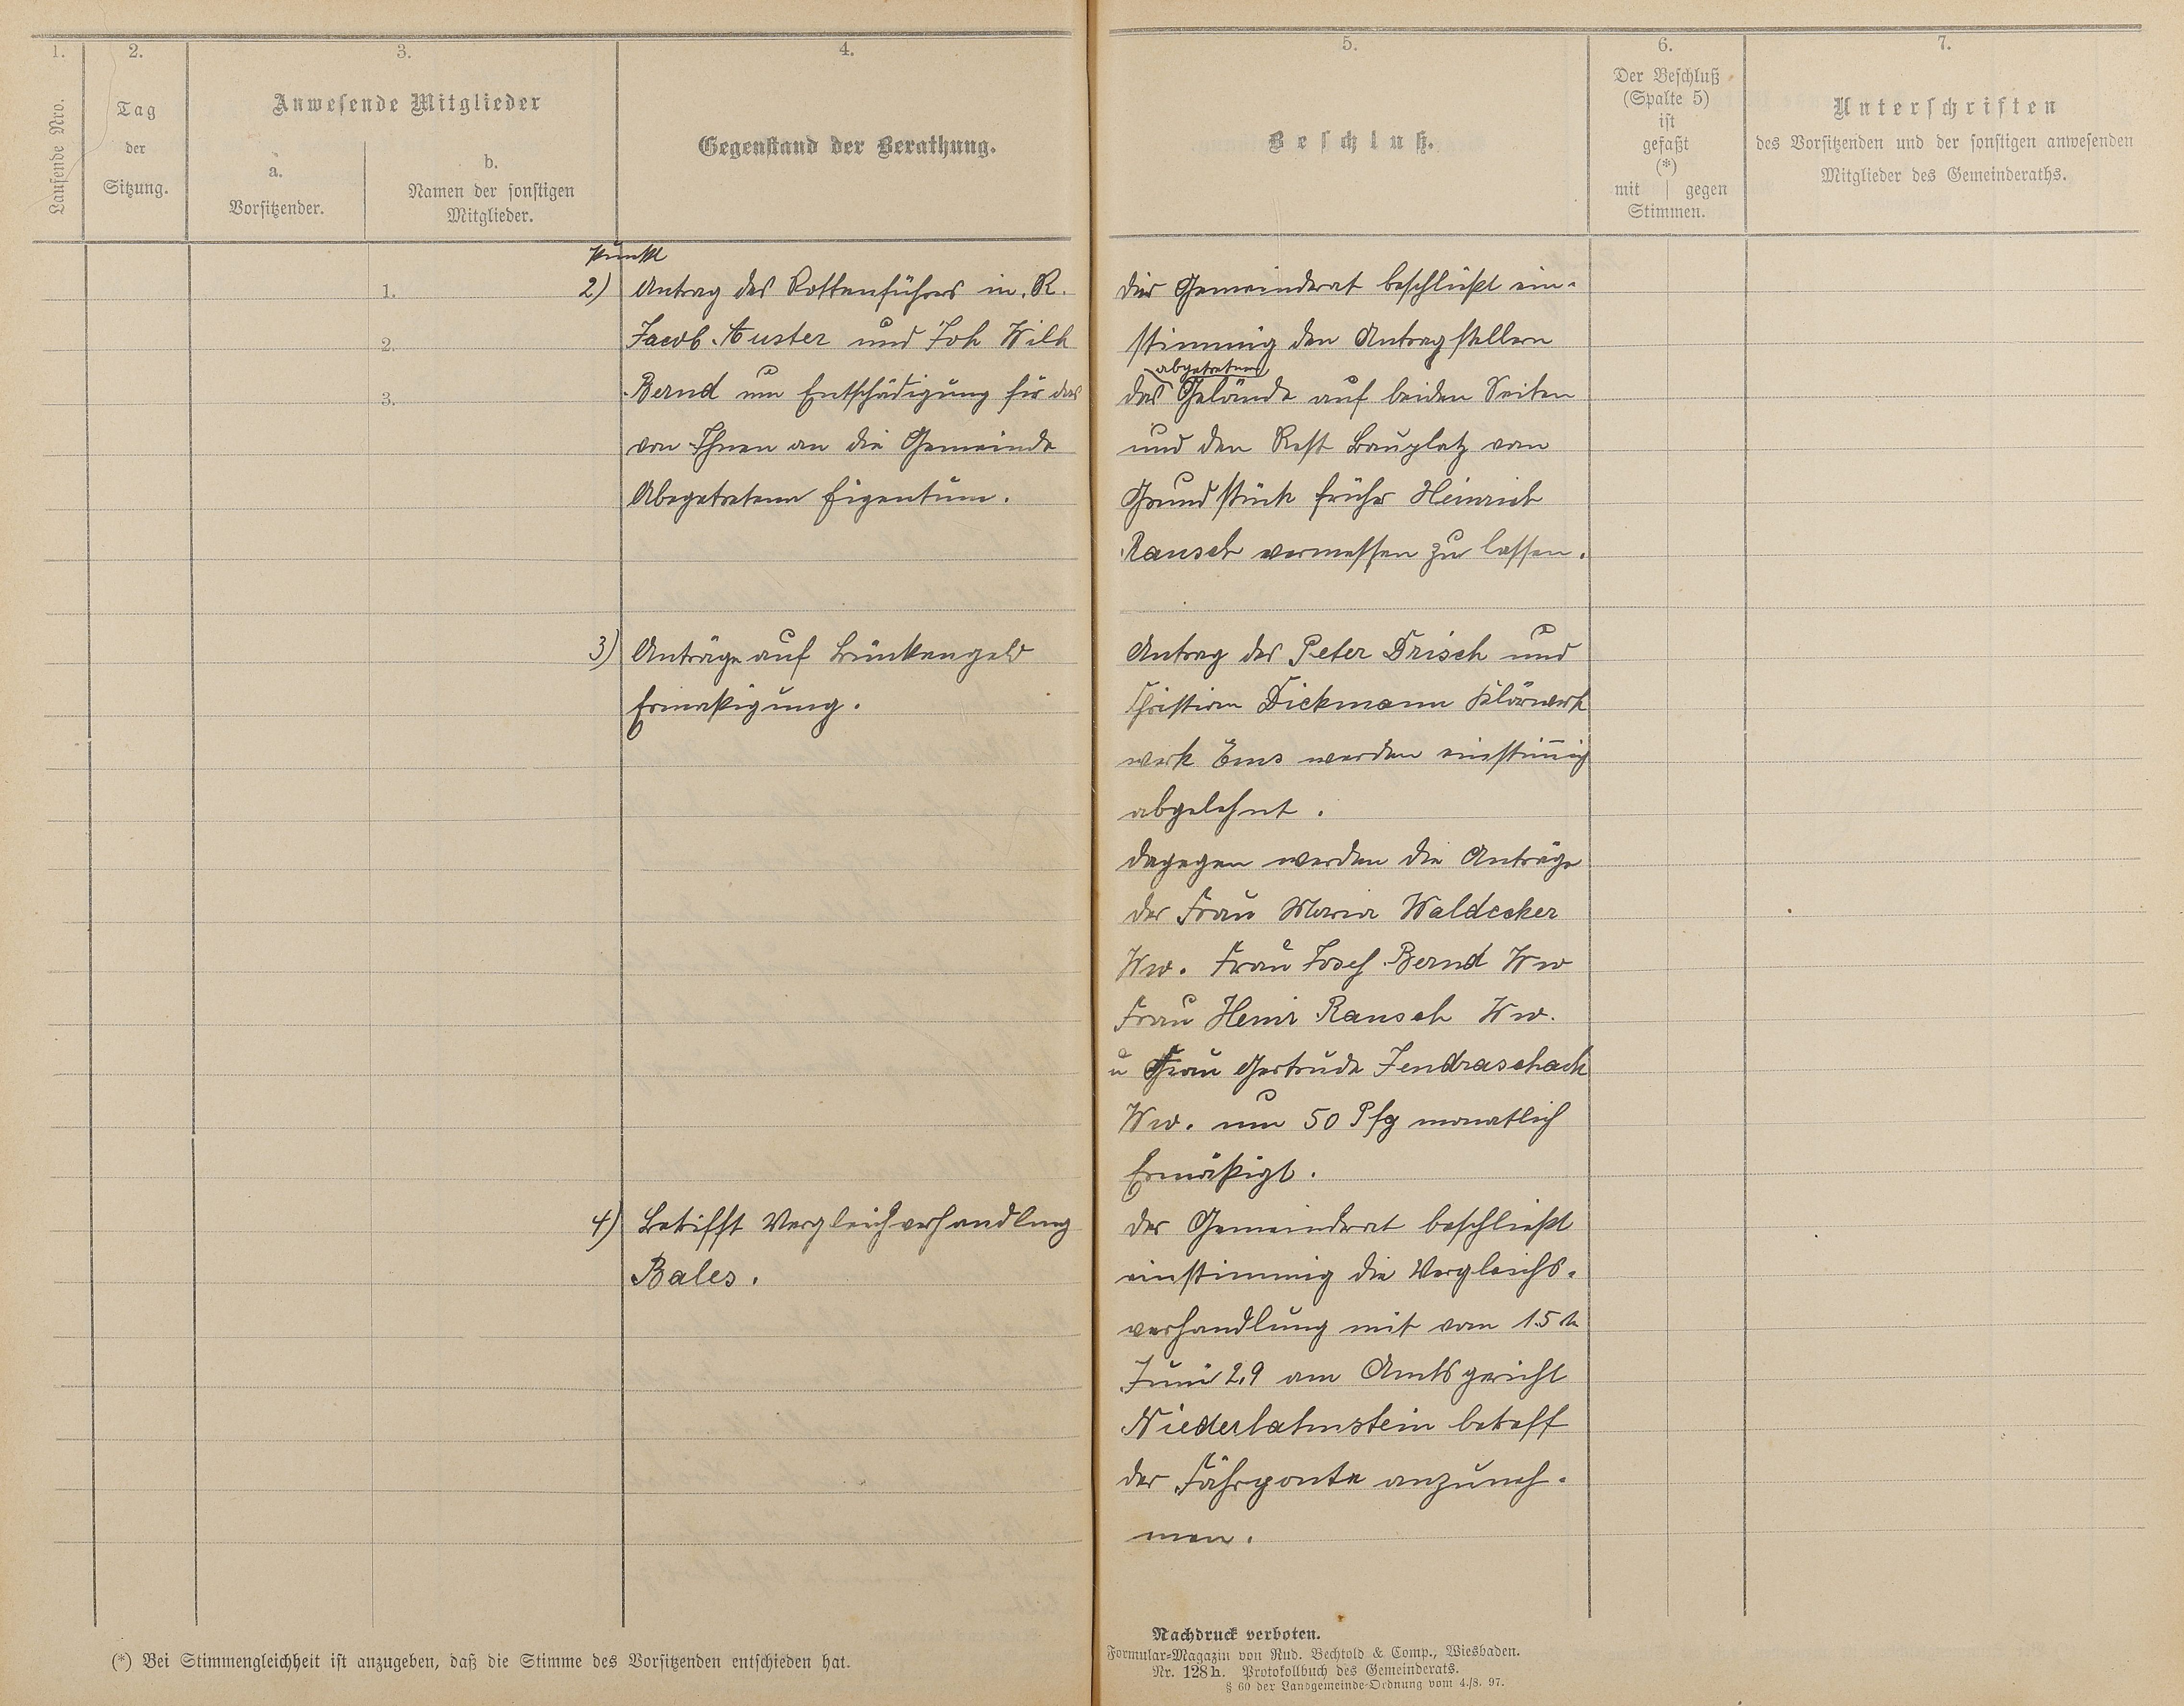 1.
2.
3.
4.
Laufende Nro.
Tag
der
Sitzung.
Anwesende Mitglieder
a.
Vorsitzender.
b.
Namen der sonstigen
Mitglieder.
Gegenstand der Berathung.
Punkt
1.
2) Antrag des Rottenführers in. R.
2.
Jacob Auster und Joh Wilh
3.
Bernd um Entschädigung für das
von Ihnen an die Gemeinde
Abegetretene Eigentum.
3) Anträge auf Brückengeld
Ermaßigung.
4) Betrifft Vergleichverhandlung
Bales.
(*) Bei Stimmengleichheit ist anzugeben, daß die Stimme des Vorsitzenden entschieden hat.
5.
6.
7.
Beschluß.
Der Beschluß
(Spalte 5)
ist
gefaßt
(*)
mit | gegen
Stimmen.
Unterschriften
des Vorsitzenden und der sonstigen anwesenden
Mitglieder des Gemeinderaths.
Der Gemeinderat beschließt ein-
stimmig den Antragstellern
abgetretene
das Gelände auf beiden Seiten
und den Rest Bauplatz vom
Grundstück früher Heinrich
Rausch vermessen zu lassen.
Antrag des Peter Drisch und
Christian Dickmann Klärwerk
werk Ems werden einstimig
abgelehnt.
Dagegen werden die Anträge
der Frau Maria Waldecker
Ww. Frau Josef Bernd Ww
Frau Heinr Rausch Ww.
u Frau Gertrude Jendraschack
Ww. um 50 Pfg monatlich
Ermäßigt.
Der Gemeindrat beschließt
einstimmig die Vergleichs-
verhandlung mit vom 15 ten
Juni 29 am Amtsgericht
Niederlahnstein betreff
der Fährponte anzuneh-
men.
Nachdruck verboten.
Formular-Magazin von Rud. Bechtold & Comp., Wiesbaden.
Nr. 128 h. Protokollbuch des Gemeinderats.
§ 60 der Landgemeinde-Ordnung vom 4./8. 97.